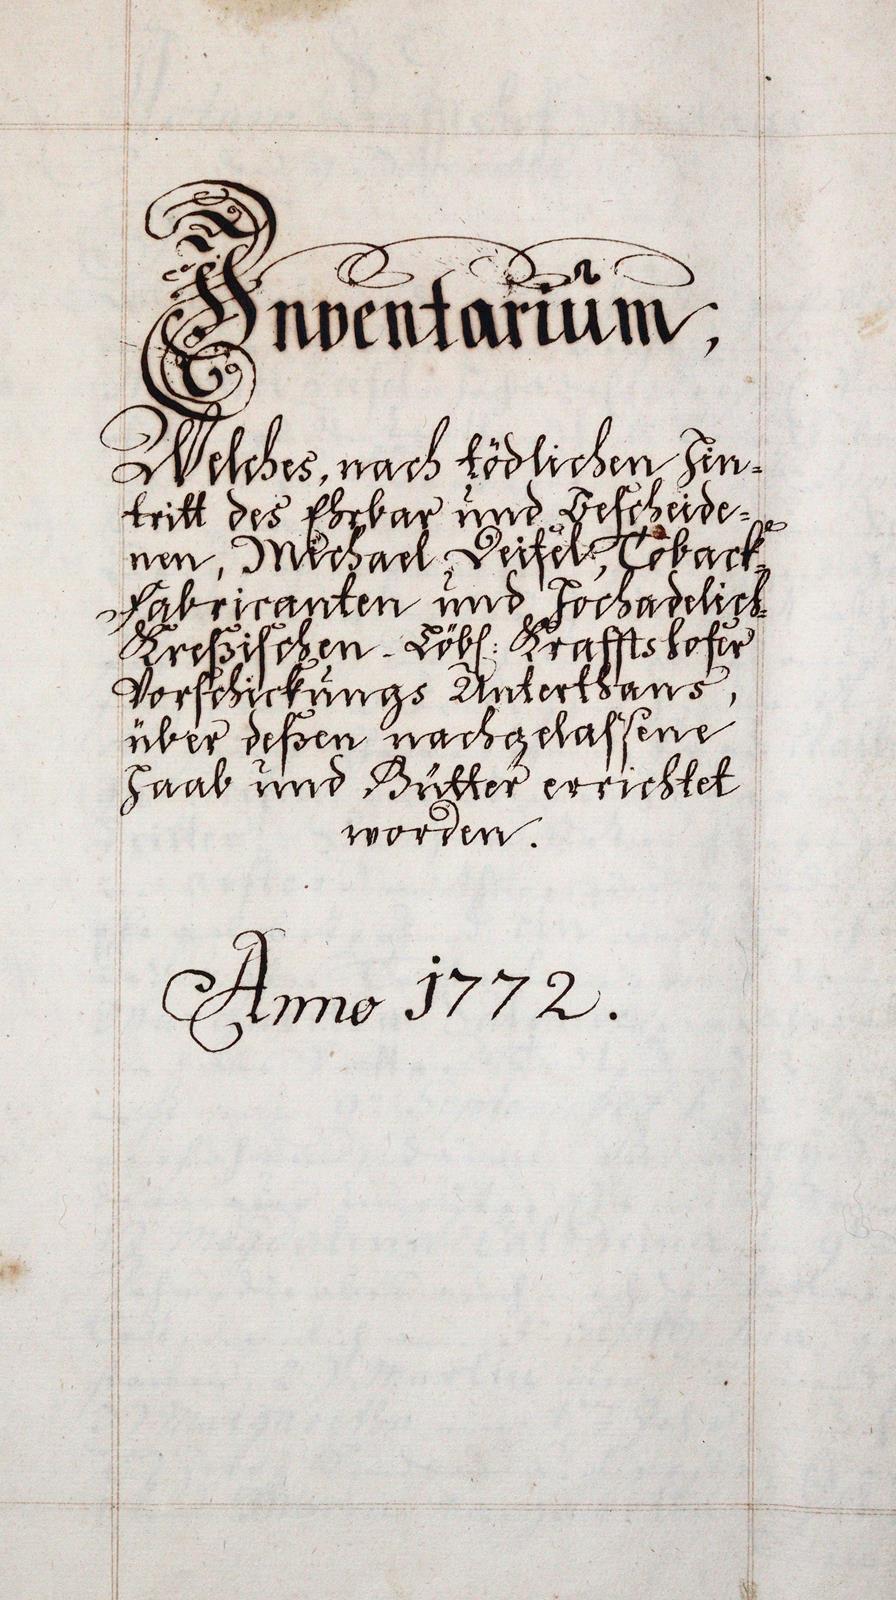 Inventarium,
Welches, nach tödlichen Hin-
tritt des Ehrbar und Bescheide-
nen, Michael Veitels, Toback-
Fabricanten und Hochadelich-
Kreßischen Löbl: Kraffts hofer
Vorschickungs Unterthans,
über deßen nachgelassene
Haab und Gütter errichtet
worden.
Anno 1772.